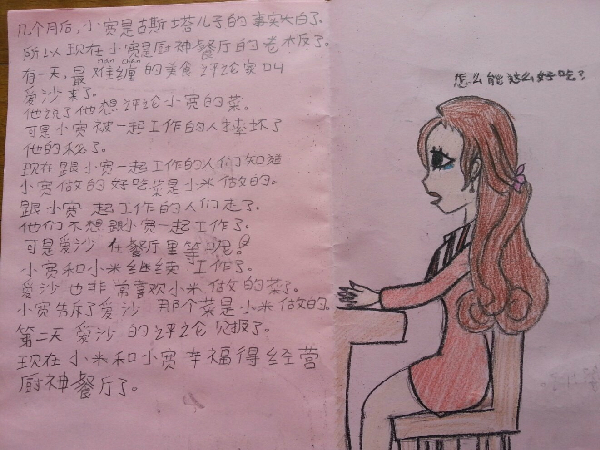 几个月后，小宽是古斯塔儿子的事实大白了。
所以现在小宽是厨神餐厅的老板了。
nán chán
有一天，最难缠的美食评论家叫
爱沙来了。
他说了他想评论小宽的菜。
可是小宽被一起工作的人摔坏了
他的秘了。
现在跟小宽一起工作的人们知道
小宽做的好吃菜是小米做的。
跟小宽一起工作的人们走了。
他们不想跟小宽一起工作了。
可是爱沙在餐厅里等呢！
小宽和小米继续工作了。
爱沙也非常喜欢小米做的菜了。
小宽告诉了爱沙那个菜是小米做的。
第二天爱沙的评论见报了。
现在小米和小宽幸福得经营
厨神餐厅了。
怎么能这么好吃？